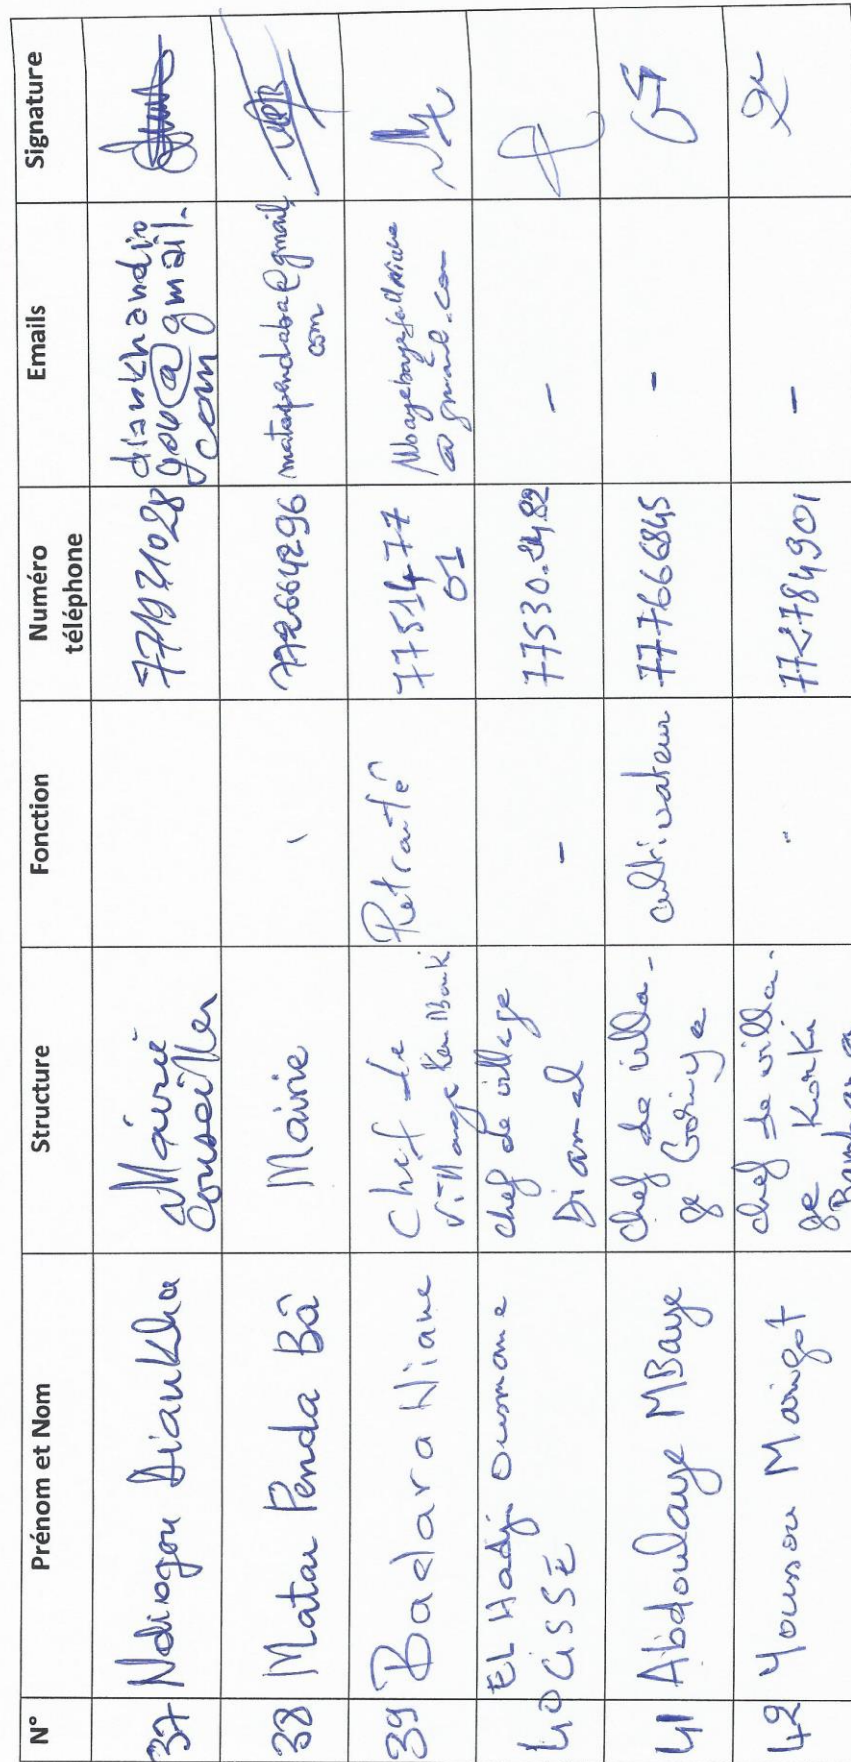 N° Prénom et Nom Structure Fonction Numéro téléphone Emails Signature
37 Ndiogou Diankha Mairie Conseiller 771971028 diankhandio
gou@gmail.
com
38 Matar Penda Bâ Mairie 772664296 matarpendaba@gmail
com
39 Badara Niane Chef de
village Keur Retraité 7751477
01
@gmail.com
40 EL Hadji Ousmane
CISSÉ chef de village
Diamal - 77530 -
41 Abdoulaye MBaye chef de villa-
ge cultivateur 777666845 -
42 Youssou Maingot chef de villa-
ge Korki
Bambara 772784901 -